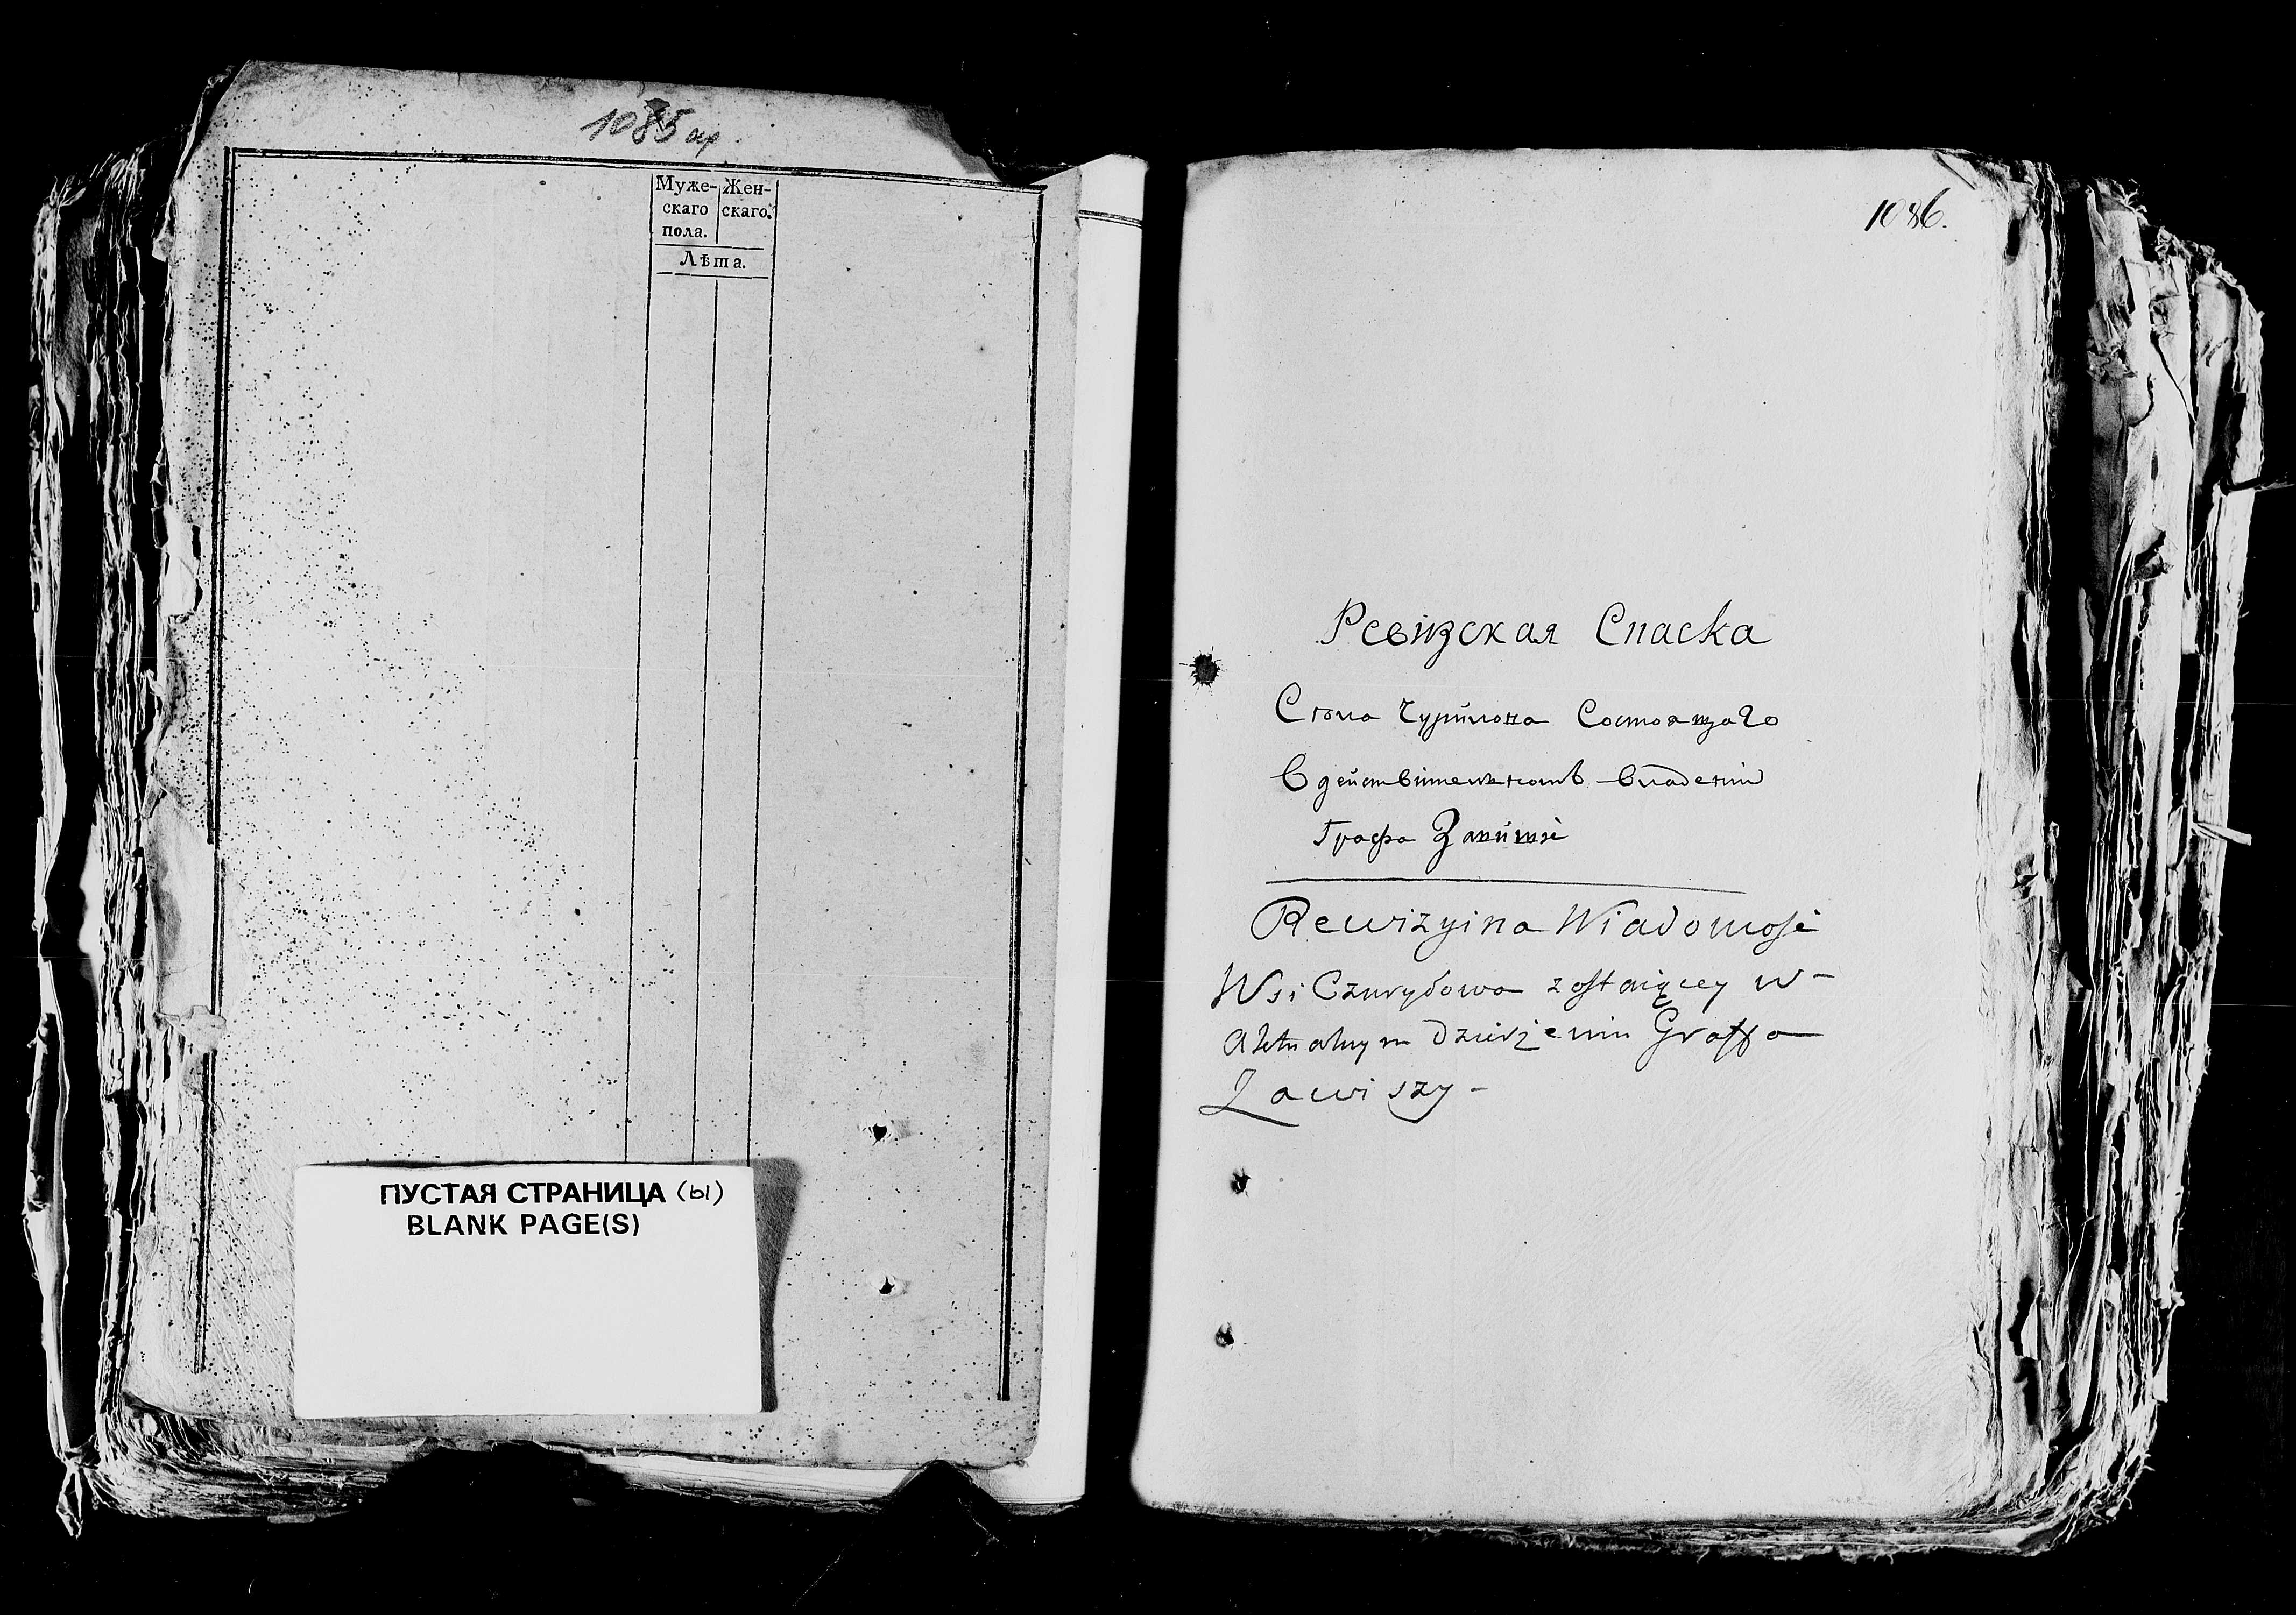 1085 об.
Муже-
скаго
пола.
Жен-
скаго.
Лѣта.
ПУСТАЯ СТРАНИЦА (ы)
BLANK PAGE(S)
1086.
Ревизская Спаска
Села Чурилова Состоящаго
В действительномъ владении
Графа Завишй
Rewizyina Wiadomość
Wsi Czuryłowa zostaiącey w-
Aktualnym Dzierżeniu Graffa
Zawiszy-